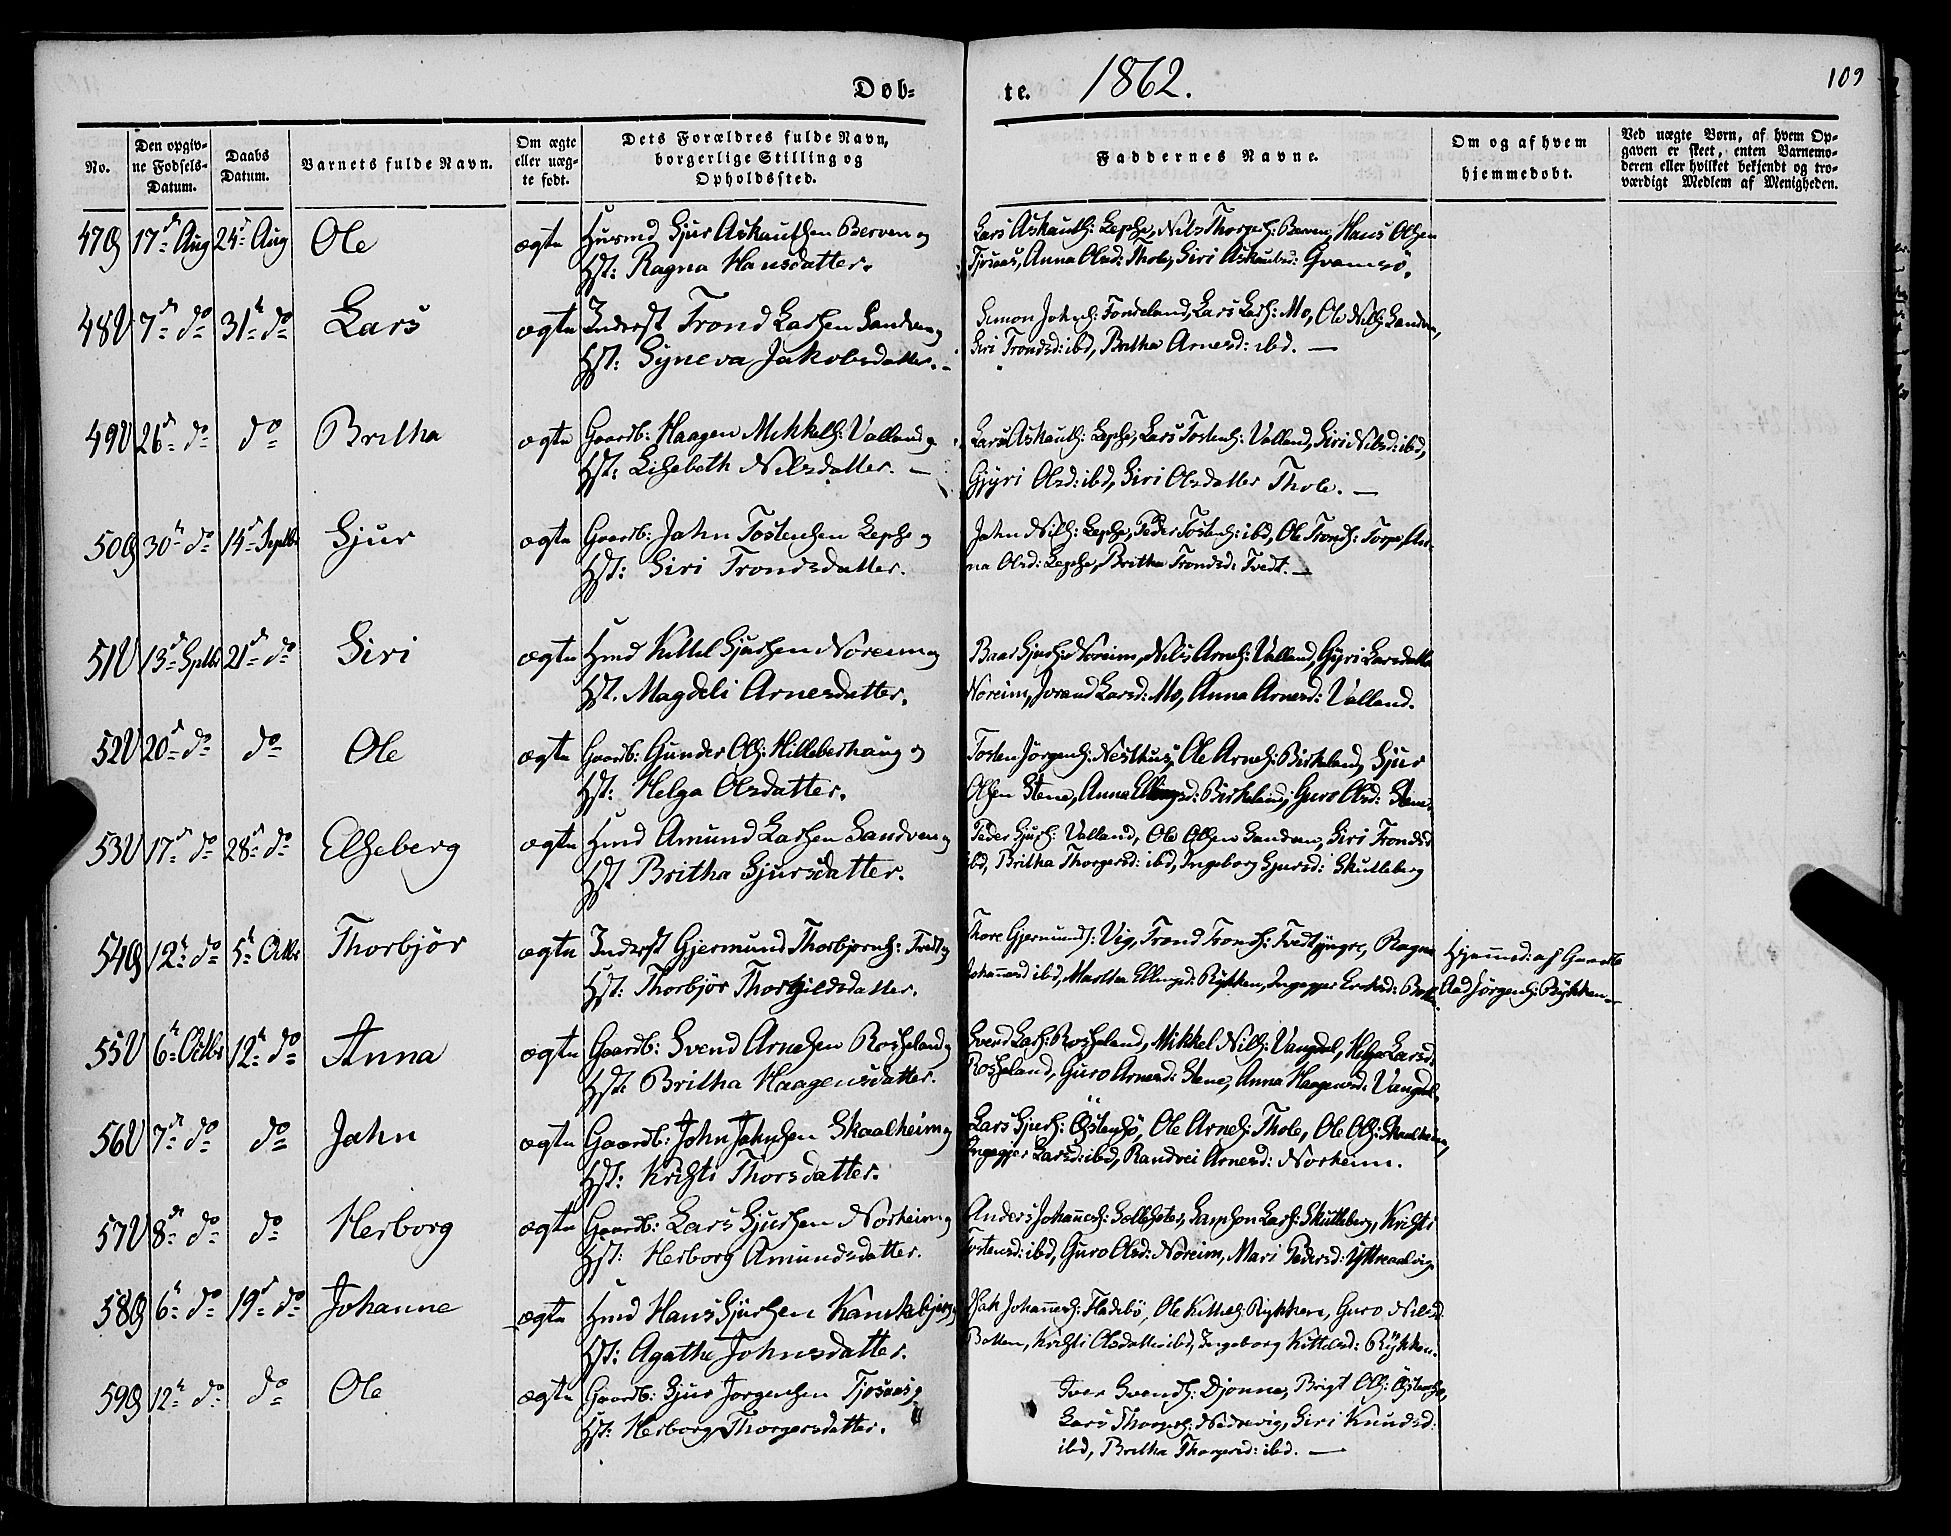 Døb=
te.
1862.
109
No.
Den opgiv=
ne Fødsels=
Datum.
Daabs
Datum.
Barnets fulde Navn.
Om ægte
eller uæg=
te født.
Dets Forældres fulde Navn,
borgerlige Stilling og
Opholdssted.
Faddernes Navne.
Om og af hvem
hjemmedøbt.
Ved uægte Børn, af hvem Op=
gaven er skeet, enten Barnemo=
deren eller hvilket bekjendt og tro=
værdigt Medlem af Menigheden.
47 17d Aug 24d Aug Ole ægte Husmd Sjur Askautsen Berven og
Hst: Ragna Hansdatter.
Lars Askauths: Lepsø, Nils Thorgs: Berven, Hans Olsen
Tjosaas, Anna Olsd: Thole, Siri Askautsd: Qvamsø.
48 7d do 31te do Lars ægte Inderst Trond Larsen Sandven og
Hst: Syneva Jakobsdatter.
Simon Johns: Fondeland, Lars Lars: Mo, Ole Nils: Sandven,
Siri Trondsd: ibd, Britha Arnesd: ibd. —
49 26d do do Britha ægte Gaardb: Haagen Mikkels: Valland og
Hst: Lisebeth Nilsdatter. —
Lars Askauths: Lepsø, Lars Tostens: Valland, Siri Nilsd: ibd,
Gjyri Olsd: ibd, Siri Olsdatter Thole. —
50 30te do 14d Septbr Sjur ægte Gaardb: John Tostensen Lepsø og
Hst: Siri Trondsdatter.
John Nils: Lepsø, Peder Tostens: ibd, Ole Tronds: Torpe, An=
na Olsd: Lepsø, Britha Trondsd: Tvedt. —
51 13d Septbr 21d do Siri ægte Hmd Kittel Sjursen Noreim og
Hst. Magdeli Arnesdatter.
Baar Sjurs: Noreim, Nils Arnes: Valland, Gyri Larsdatter
Noreim, Jorand Larsd: Mo, Anna Arnesd: Valland.
52 20d do do Ole ægte Gaardb: Gunder Ols: Hilleberhaug og
Hst: Helga Olsdatter.
Tosten Jørgens: Nesthus, Ole Arnes: Birkeland, Sjur
Olsen Stene, Anna Ellingsd: Birkeland, Guro Olsd: Stene.
53 17d do 28d do Elseberg ægte Hmd Amund Larsen Sandven og
Hst Britha Sjursdatter.
Peder Sjurs: Valland, Ole Olsen Sandven, Siri Trondsd
ibd, Britha Thorgersd: ibd, Ingeborg Sjursd: Skutleberg
54 12te do 5te Octbr Thorbjør ægte Inderst Gjermund Thorbjørns: Tvedt og
Hst: Thorbjør Thorgildsdatter.
Thore Gjermunds: Vig, Trond Tronds: Tvedt yngre, Ragna
Johannesd ibd, Martha Ellingsd: Rykken,
Hjemmed: af
Aad Jørgens: Rykken
55 6te Octbr 12te do Anna ægte Gaardb: Svend Arnesen Rosseland og
Hst: Britha Haagensdatter.
Svend Lars: Rosseland, Mikkel Nils: Vangdal, Helga Larsd:
Rosseland, Guro Arnesd: Stene, Anna Haagensd: Vangdal.
56 7de do do John ægte Gaardb: John Johnsen Skaalheim og
Hst: Kristi Thorsdatter.
Lars Sjurs: Østensø, Ole Arnes: Thole, Ole Ols: Skaalheim,
Ingegjer Larsd: ibd, Randvei Arnesd: Norheim.
57 8de do do Herborg ægte Gaardb: Lars Sjursen Norheim og
Hst: Herborg Amundsdatter.
Anders Johannes: Solleseter, Samson Lars: Skutleberg, Kristi
Tostensd: ibd, Guro Olsd: Noreim, Mari Pedersd: Yttreaalvig.
58 6te do 19d do Johanne ægte Hmd Hans Sjursen
Hst: Agathe Johnsdatter.
Isak Johannes: Fladebø, Ole Kittels: Rykken, Guro Nilsd:
Botten, Kristi Olsdatter ibd, Ingeborg Kittelsd: Rykken.
59 12te do do Ole ægte Gaardb: Sjur Jørgensen Tjosaas og
Hst: Herborg Thorgersdatter.
Iver Svends: Djønne, Brigt Ols: Østensø,
Lars Thorgers: Nedrevig, Siri Knudsd:
ibd, Britha Thorgersd: ibd. —